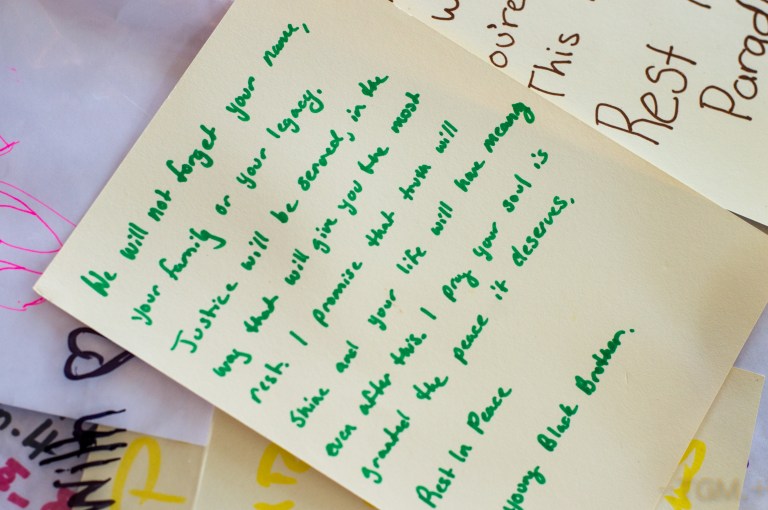 We will not forget your name,
your family or your legacy.
Justice will be served, in the
way that will give you the most
rest. I promise that truth will
shine and your life will have meaning
even after this. I pray your soul is
granted the peace it deserves.
Rest In Peace
young Black Brother.
ou're
This
Rest
Parad
With